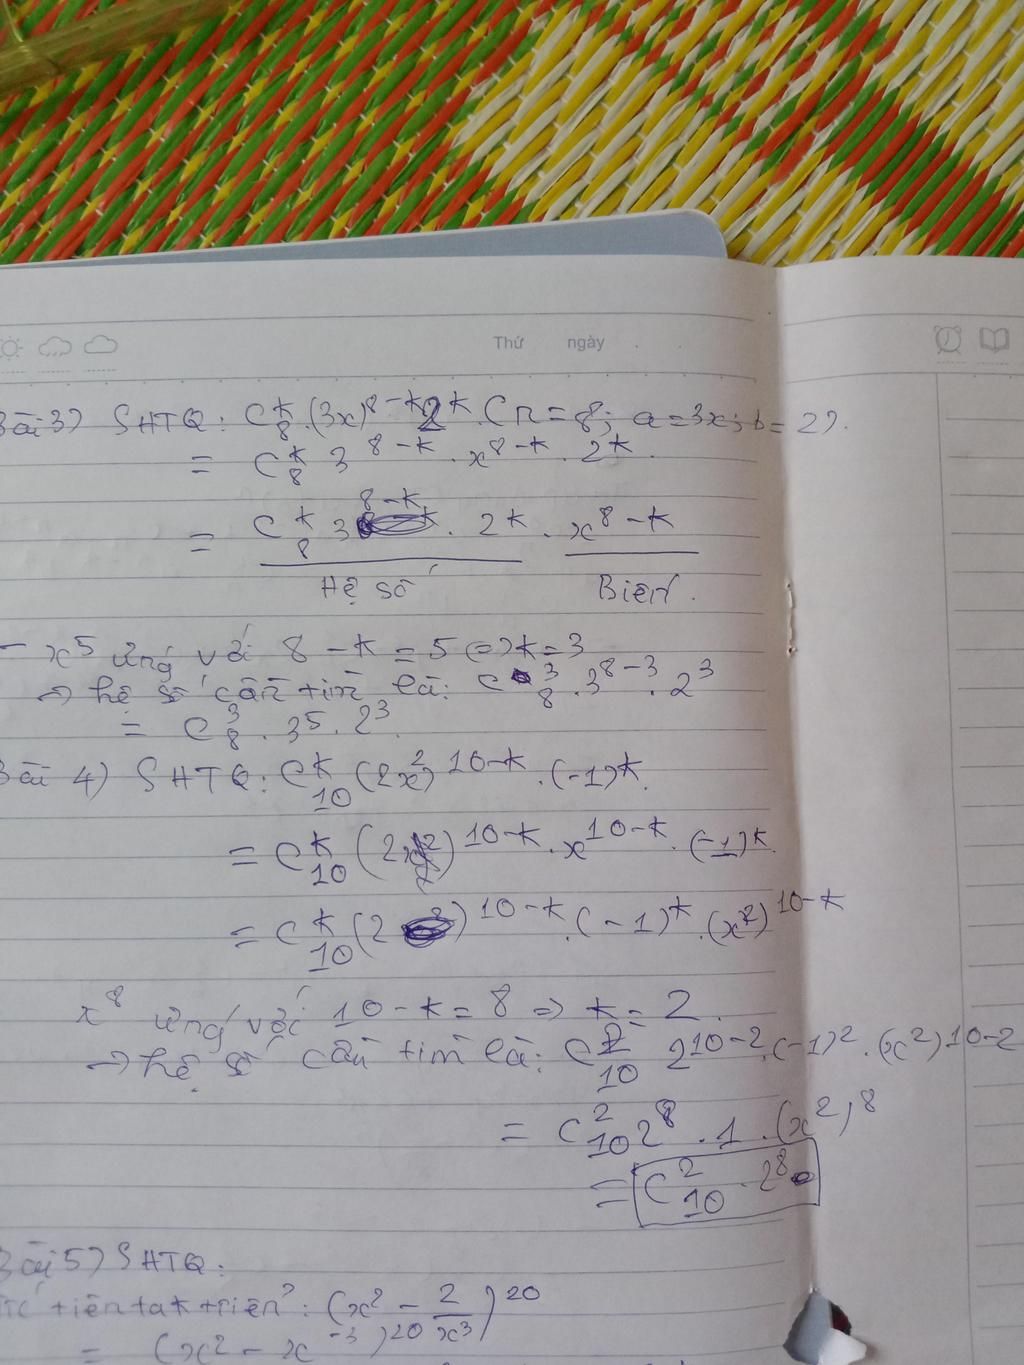 Thứ ngày
Bài 3) SHTQ: C₈ᵏ.(3x)⁸⁻ᵏ 2ᵏ. (n=8; a=3x; b=2).
= C₈ᵏ 3⁸⁻ᵏ . x⁸⁻ᵏ . 2ᵏ.
= C₈ᵏ 3⁸⁻ᵏ . 2ᵏ . x⁸⁻ᵏ
Hệ số Biến.
- x⁵ ứng với 8-k=5 <=> k=3
→ hệ số cần tìm là: C₈³ . 3⁸⁻³ . 2³
= C₈³ . 3⁵ . 2³.
Bài 4) SHTQ: C₁₀ᵏ (2x²)¹⁰⁻ᵏ . (-1)ᵏ.
= C₁₀ᵏ (2)¹⁰⁻ᵏ . x¹⁰⁻ᵏ . (-1)ᵏ.
= C₁₀ᵏ (2)¹⁰⁻ᵏ . (-1)ᵏ . (x²)¹⁰⁻ᵏ
x⁸ ứng với 10-k=8 => k=2.
→ hệ số cần tìm là: C₁₀² 2¹⁰⁻² . (-1)² . (x²)¹⁰⁻²
= C₁₀² 2⁸ . 1 . (x²)⁸
= C₁₀² . 2⁸
Bài 5) SHTQ:
: (x² - 2/x³)²⁰
= (x² - x⁻³)²⁰